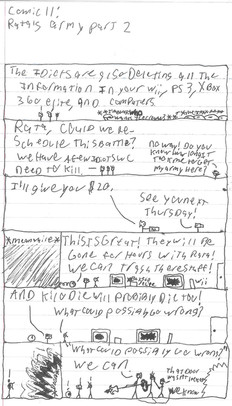 Comic 11:
Rata's army part 2
The Idiots are also Deleting all The
Information In your wii, PS3, XBox
360 elite, AND computers
Rata, Could we Re-
Schedule This Battle?
We have A few idiots we
need to kill
No way! Do you
know how long it
took me to get
my army here?
I'll give you $20.
See you next
Thursday!
*meanwhile*
This Is Great! They will Be
Gone for Hours with Rata!
We can trash there stuff!
AND
will probably
What could possibly go wrong?
What could possibly go wrong?
We can.